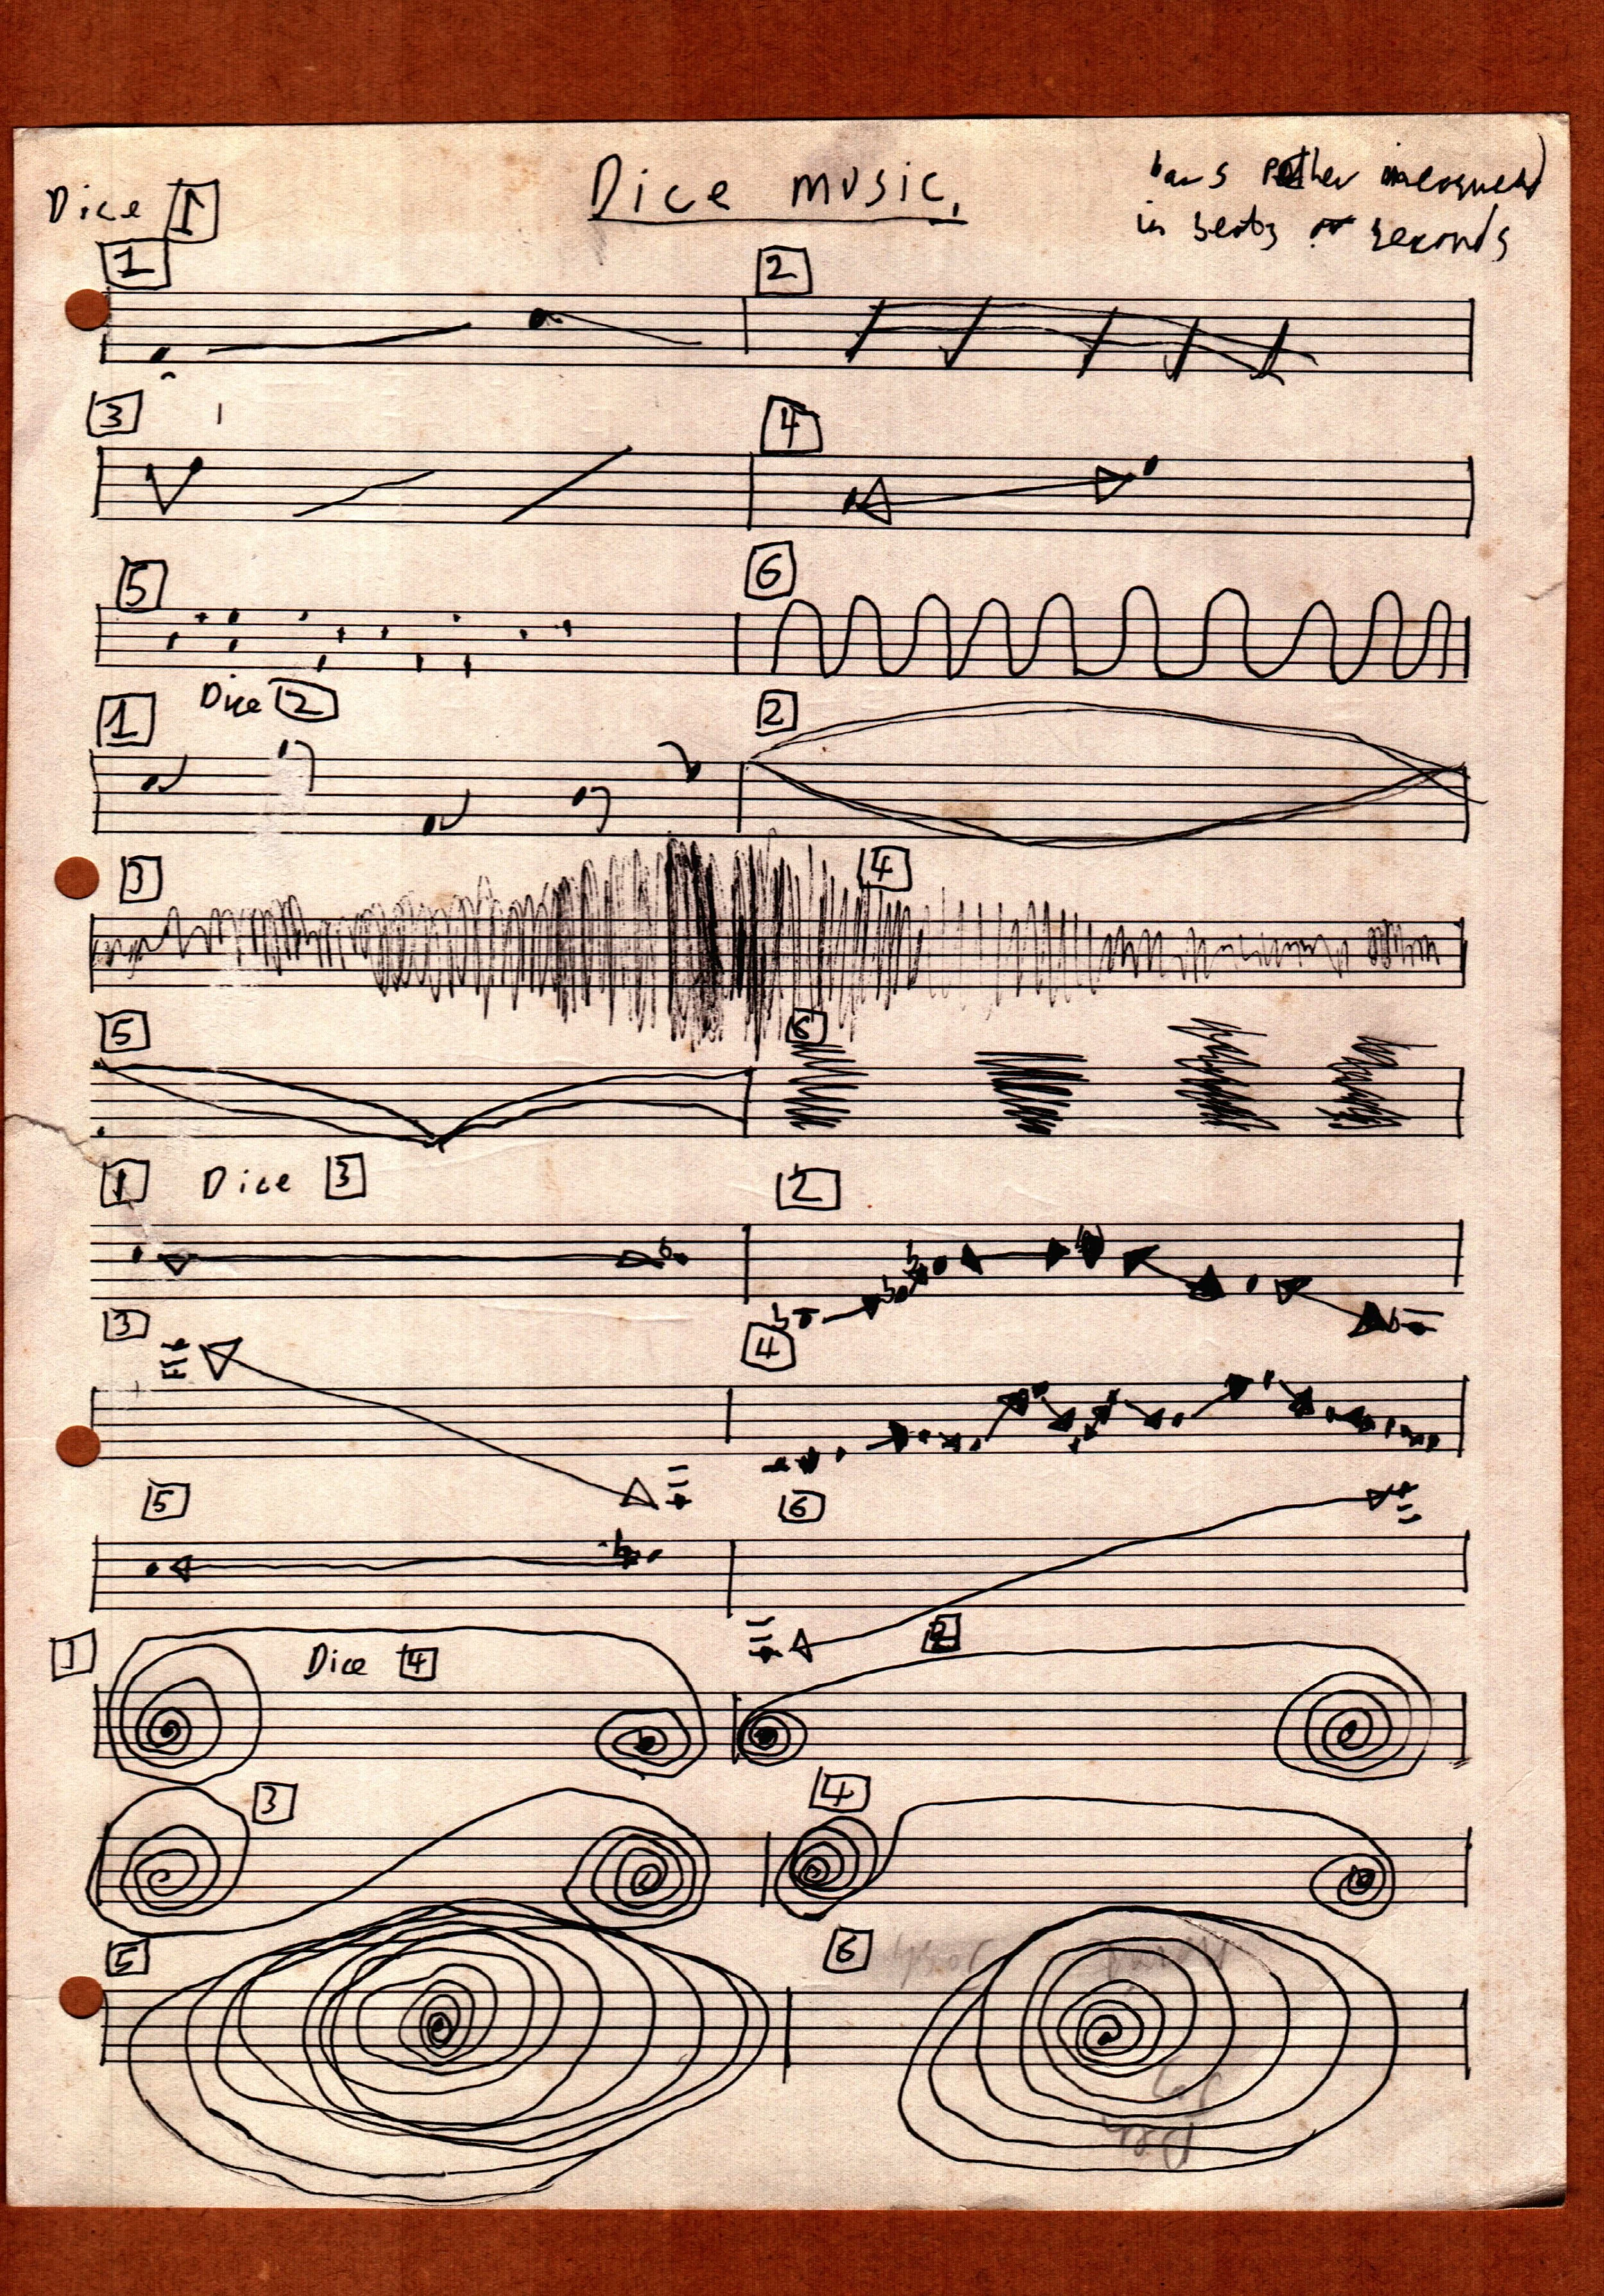 Dice music.
bars measured
in beats or seconds
Dice 1
1 2
3 4
5 6
Dice 2
1 2
3 4
5 6
Dice 3
1 2
3 4
5 6
Dice 4
1 2
3 4
5 6